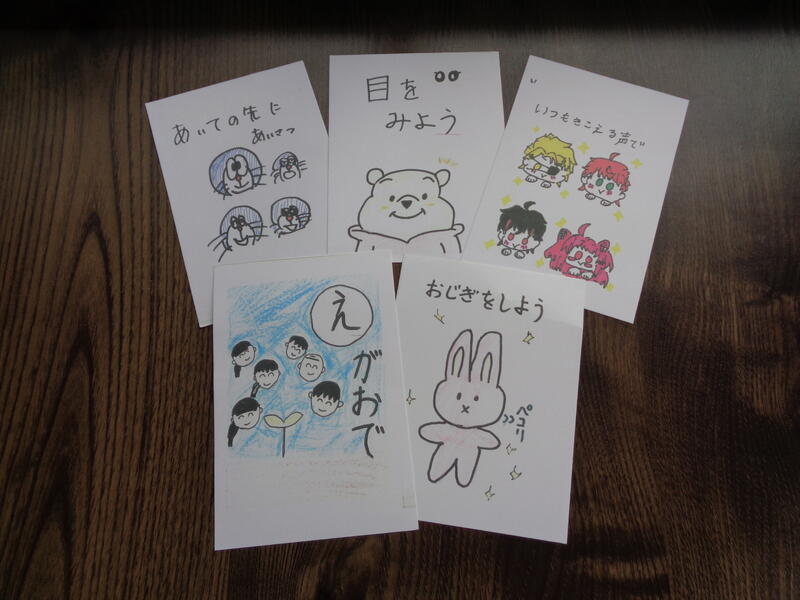 あいての先に
あいさつ
目を
みよう
いつもきこえる声で
え
がおで
おじぎをしよう
ペコリ